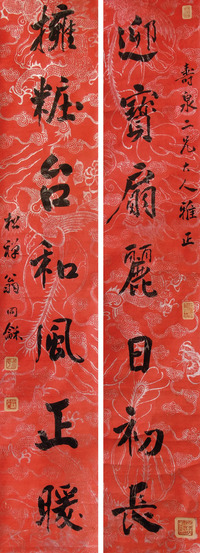 壽泉二兄大人雅正
迎寶扇麗日初長
擁粧台和風正暖
松禅翁同龢